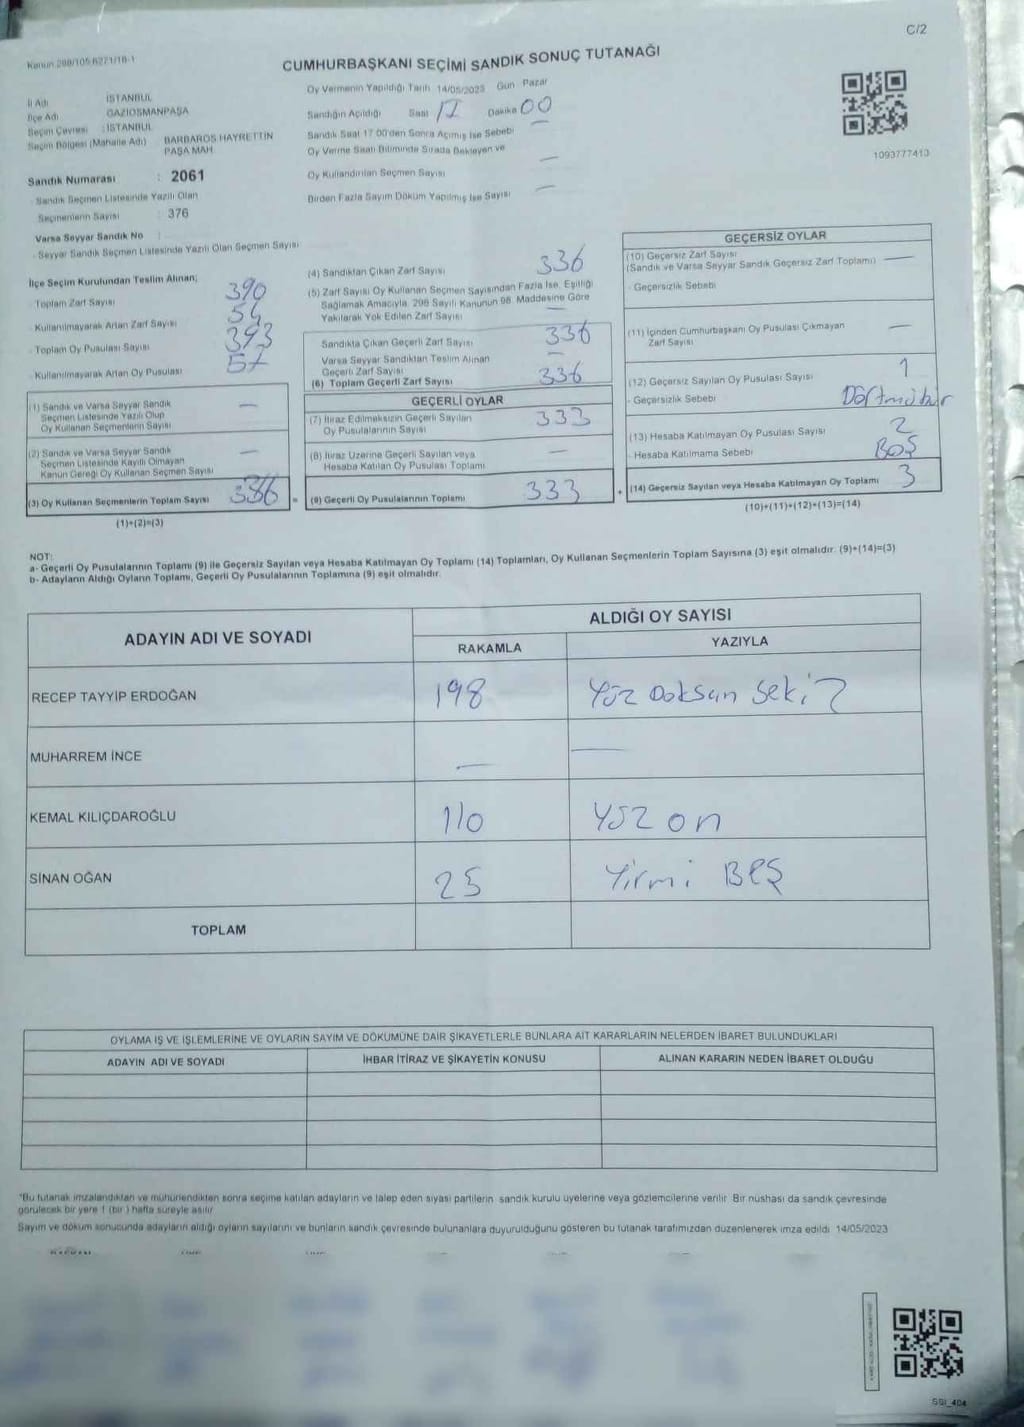 C/2
Kanun 298/105 6271/18-1
CUMHURBAŞKANI SEÇİMİ SANDIK SONUÇ TUTANAĞI
İl Adı : İSTANBUL
İlçe Adı : GAZİOSMANPAŞA
Seçim Çevresi : İSTANBUL
Seçim Bölgesi (Mahalle Adı) : BARBAROS HAYRETTİN
PAŞA MAH.
Sandık Numarası : 2061
Sandık Seçmen Listesinde Yazılı Olan
Seçmenlerin Sayısı : 376
Varsa Seyyar Sandık No :
- Seyyar Sandık Seçmen Listesinde Yazılı Olan Seçmen Sayısı
Oy Vermenin Yapıldığı Tarih 14/05/2023 Gün Pazar
Sandığın Açıldığı Saat 17 Dakika 00
Sandık Saat 17.00'den Sonra Açılmış İse Sebebi —
Oy Verme Saati Bitiminde Sırada Bekleyen ve
Oy Kullandırılan Seçmen Sayısı —
Birden Fazla Sayım Döküm Yapılmış İse Sayısı —
1093777413
İlçe Seçim Kurulundan Teslim Alınan;
- Toplam Zarf Sayısı 390
- Kullanılmayarak Artan Zarf Sayısı 54
- Toplam Oy Pusulası Sayısı 393
- Kullanılmayarak Artan Oy Pusulası 57
(1) Sandık ve Varsa Seyyar Sandık
Seçmen Listesinde Yazılı Olup
Oy Kullanan Seçmenlerin Sayısı —
(2) Sandık ve Varsa Seyyar Sandık
Seçmen Listesinde Kayıtlı Olmayan
Kanun Gereği Oy Kullanan Seçmen Sayısı —
(3) Oy Kullanan Seçmenlerin Toplam Sayısı 336 =
(1)+(2)=(3)
(4) Sandıktan Çıkan Zarf Sayısı 336
(5) Zarf Sayısı Oy Kullanan Seçmen Sayısından Fazla İse, Eşitliği
Sağlamak Amacıyla, 298 Sayılı Kanunun 98. Maddesine Göre
Yakılarak Yok Edilen Zarf Sayısı —
Sandıkta Çıkan Geçerli Zarf Sayısı 336
Varsa Seyyar Sandıktan Teslim Alınan
Geçerli Zarf Sayısı —
(6) Toplam Geçerli Zarf Sayısı 336
GEÇERLİ OYLAR
(7) İtiraz Edilmeksizin Geçerli Sayılan
Oy Pusulalarının Sayısı 333
(8) İtiraz Üzerine Geçerli Sayılan veya
Hesaba Katılan Oy Pusulası Toplamı —
(9) Geçerli Oy Pusulalarının Toplamı 333 +
GEÇERSİZ OYLAR
(10) Geçersiz Zarf Sayısı
(Sandık ve Varsa Seyyar Sandık Geçersiz Zarf Toplamı) —
- Geçersizlik Sebebi
(11) İçinden Cumhurbaşkanı Oy Pusulası Çıkmayan
Zarf Sayısı —
(12) Geçersiz Sayılan Oy Pusulası Sayısı 1
- Geçersizlik Sebebi
(13) Hesaba Katılmayan Oy Pusulası Sayısı 2
- Hesaba Katılmama Sebebi BOŞ
(14) Geçersiz Sayılan veya Hesaba Katılmayan Oy Toplamı 3
(10)+(11)+(12)+(13)=(14)
NOT:
a- Geçerli Oy Pusulalarının Toplamı (9) ile Geçersiz Sayılan veya Hesaba Katılmayan Oy Toplamı (14) Toplamları, Oy Kullanan Seçmenlerin Toplam Sayısına (3) eşit olmalıdır. (9)+(14)=(3)
b- Adayların Aldığı Oyların Toplamı, Geçerli Oy Pusulalarının Toplamına (9) eşit olmalıdır.
ADAYIN ADI VE SOYADI
ALDIĞI OY SAYISI
RAKAMLA YAZIYLA
RECEP TAYYİP ERDOĞAN 198 Yüz Doksan Sekiz
MUHARREM İNCE — —
KEMAL KILIÇDAROĞLU 110 Yüz on
SİNAN OĞAN 25 Yirmi BEŞ
TOPLAM
OYLAMA İŞ VE İŞLEMLERİNE VE OYLARIN SAYIM VE DÖKÜMÜNE DAİR ŞİKAYETLERLE BUNLARA AİT KARARLARIN NELERDEN İBARET BULUNDUKLARI
ADAYIN ADI VE SOYADI İHBAR İTİRAZ VE ŞİKAYETİN KONUSU ALINAN KARARIN NEDEN İBARET OLDUĞU
*Bu tutanak imzalandıktan ve mühürlendikten sonra seçime katılan adayların ve talep eden siyasi partilerin sandık kurulu üyelerine veya gözlemcilerine verilir. Bir nüshası da sandık çevresinde
görülecek bir yere 1 (bir ) hafta süreyle asılır
Sayım ve döküm sonucunda adayların aldığı oyların sayılarını ve bunların sandık çevresinde bulunanlara duyurulduğunu gösteren bu tutanak tarafımızdan düzenlenerek imza edildi. 14/05/2023
SSI_404